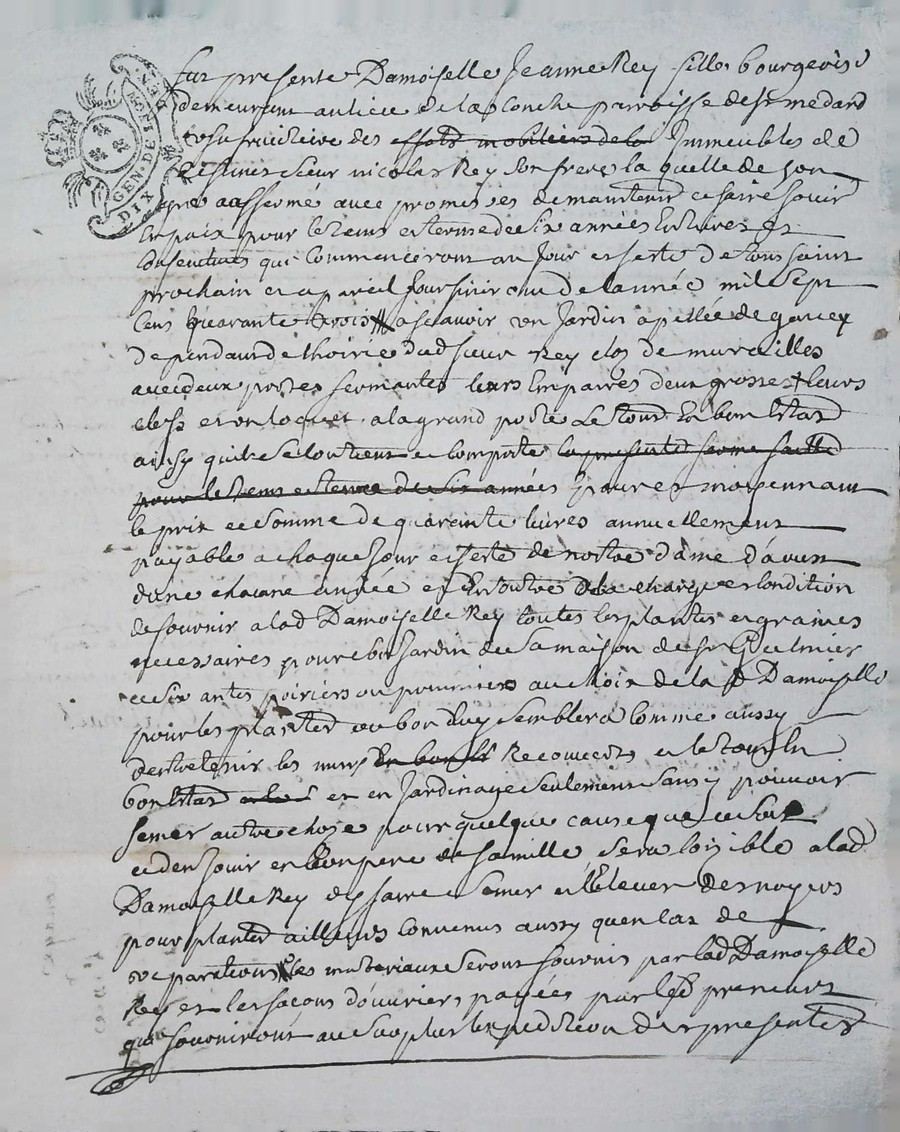 GEN. DE
DIX
fut presente Damoiselle Jeanne Rey fille bourgeoise
demeurant au lieu de la Conche parroisse de st medard
usufruitiere des effets mobiliers de la Immeubles de
sieur nicolas Rey son frere la quelle de son
gré a affermé avec promesses de maintenir et faire jouir
En paix pour le tems et terme de six années Entieres et
Consecutives qui Commenceront au Jour et feste de toussaint
prochain et a pareil Jour finiront de l'année mil sept
Cens quarante trois a scavoir un Jardin apellée de
dependant de l'hoirie dud sieur Rey clos de murailles
avec deux portes fermantes leurs deux grosses leurs
clefs et un loquet a la grand porte Le tout En bon Etat
ainsy qu'il se Contient et Comporte la presente ferme faitte
pour le tems et terme de six années pour et moyennant
le prix et somme de quarante livres annuellement
payable a chaque Jour et feste de nostre dame d'avust
d'une chacune année et En outre de la charge et Condition
de fournir a lad Damoiselle Rey toutes les plantes et graines
necessaires pour le Jardin de sa maison de st
et six antes poiriers ou pommiers au choix de la D Damoiselle
pour les planter ou bon luy semblera Comme aussy
d'entretenir les murs En bon Recouverts et le tout En
bon Etat et en Jardinage seulement sans y pouvoir
semer autre chose pour quelque cause que ce soit
et d'en Jouir en bon pere de famille, sera loizible a lad
Damoiselle Rey d'y faire semer et Elever des noyers
pour planter ailleurs Convenus aussy qu'en Cas de
reparations les materiaux seront fournis par lad Damoiselle
Rey et les façons d'ouvriers payées par les preneurs
qui fourniront au surplus Expedition des presentes